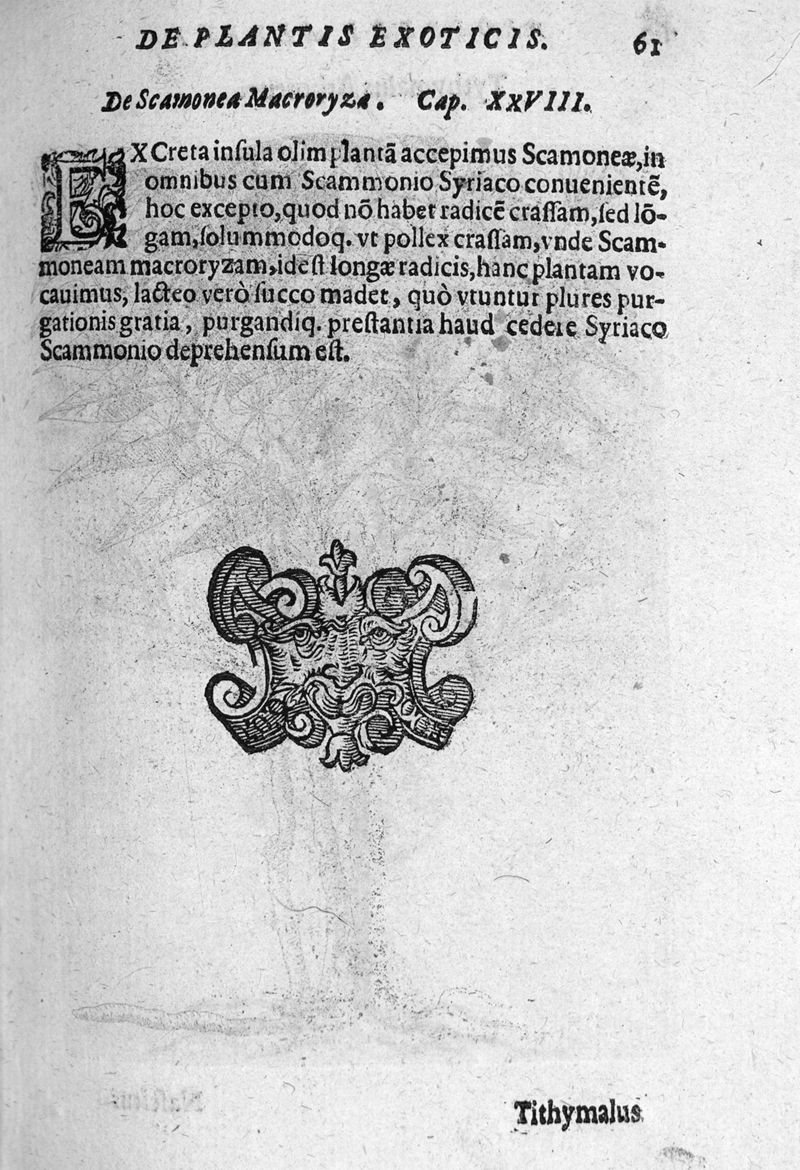 DE PLANTIS EXOTICIS. 61
De Scamonea Macroryza. Cap. XXVIII.
EX Creta inſula olim plantã accepimus Scamoneæ, in
omnibus cum Scammonio Syriaco conuenientẽ,
hoc excepto, quod nõ habet radicẽ craſſam, ſed lõ-
gam, ſolummodoq. vt pollex craſſam, vnde Scam-
moneam macroryzam, ideſt longæ radicis, hanc plantam vo-
cauimus, lacteo verò ſucco madet, quò vtuntur plures pur-
gationis gratia, purgandiq. preſtantia haud cedere Syriaco
Scammonio deprehenſum eſt.
Tithymalus